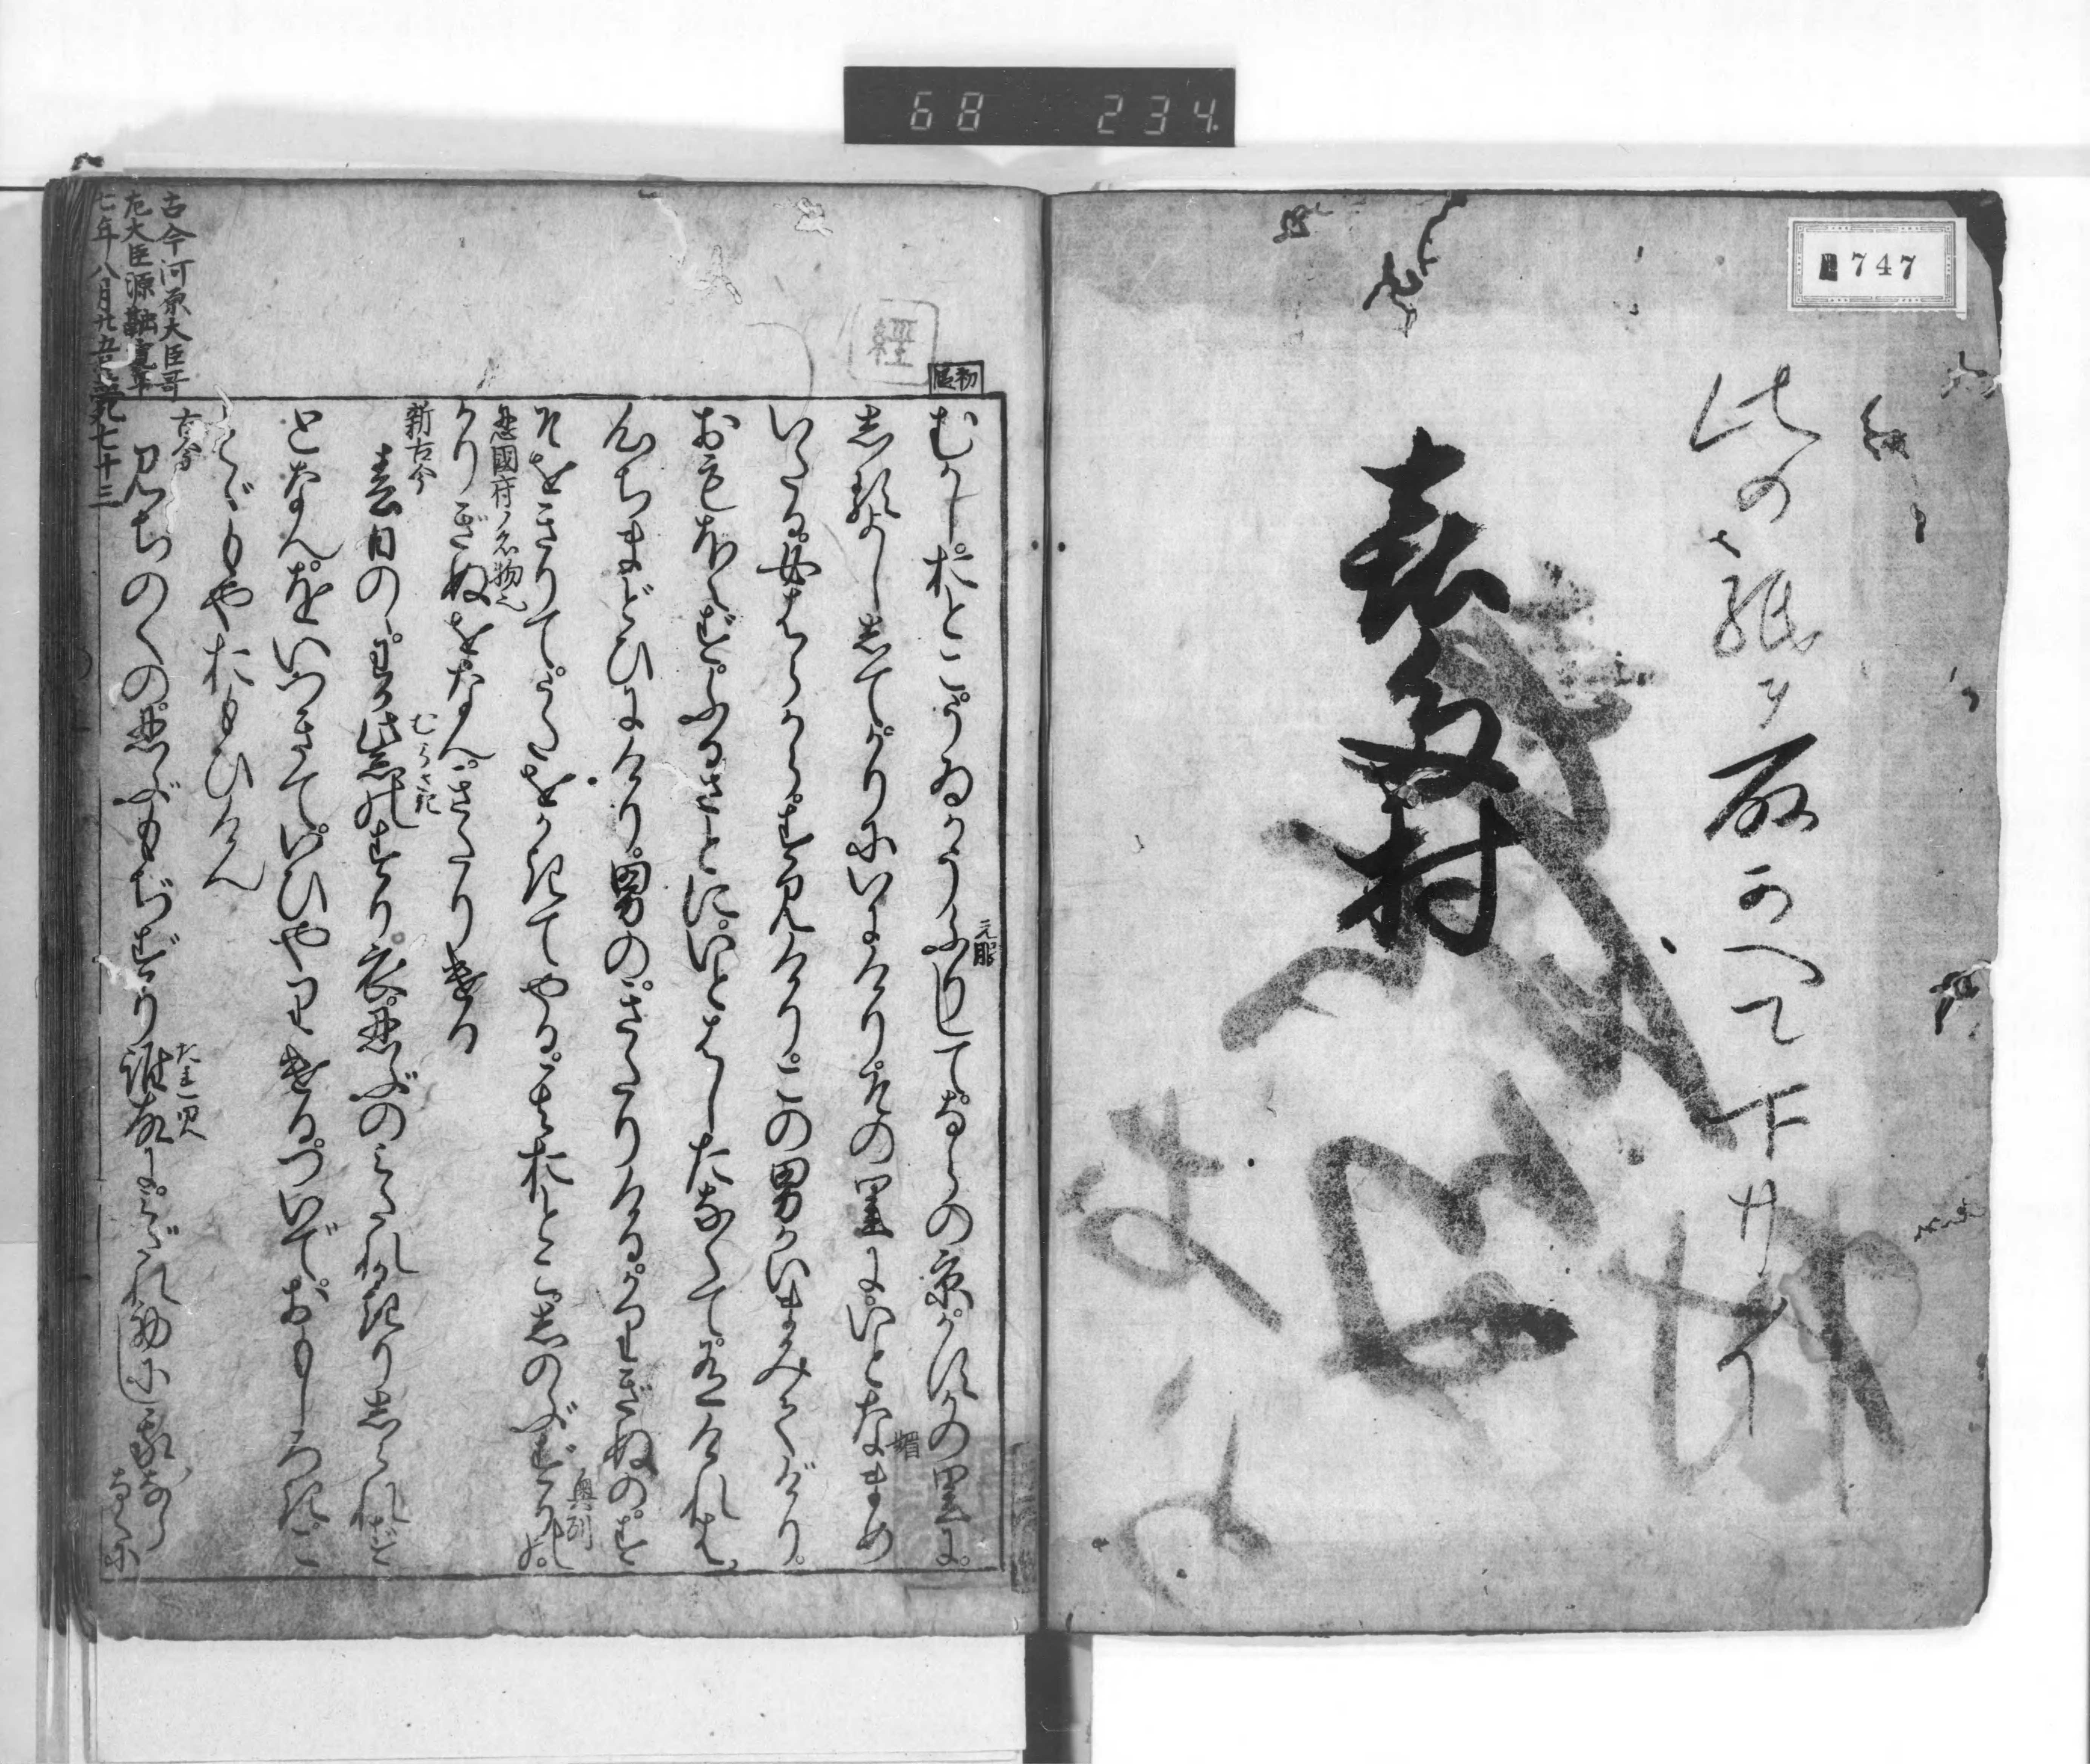 68 234
747
此の紙ヲ取かへて下サイ
喜多村
經
初段
むかしおとこうゐかうふりしてならの京かすかの里に
元服
志るよししてかりにいにけりその里にいとなまめ
媚
いたる女はらからすみけりこの男かいまみてけり
おもほえずふるさとにいとはしたなくてありけれは
心ちまどひにけり男のきたりけるかりぎぬのすそ
をきりてうたをかきてやるその
おとこ志のぶずりの
奥州
忍國府ノ名物也
かりぎぬをなんきたりける
新古今
春日のゝわか紫のすり衣忍ぶのみたれ限りしられず
むらさき
となんをいつきていひやりけるついでおもしろきこ
とゞもやおもひけん
古今
みちのくの忍ぶもぢずり誰故にみだれ初にし我ならなくに
たれゆへ
古今河原大臣哥
左大臣源融寛平
七年八月廿五日薨七十三